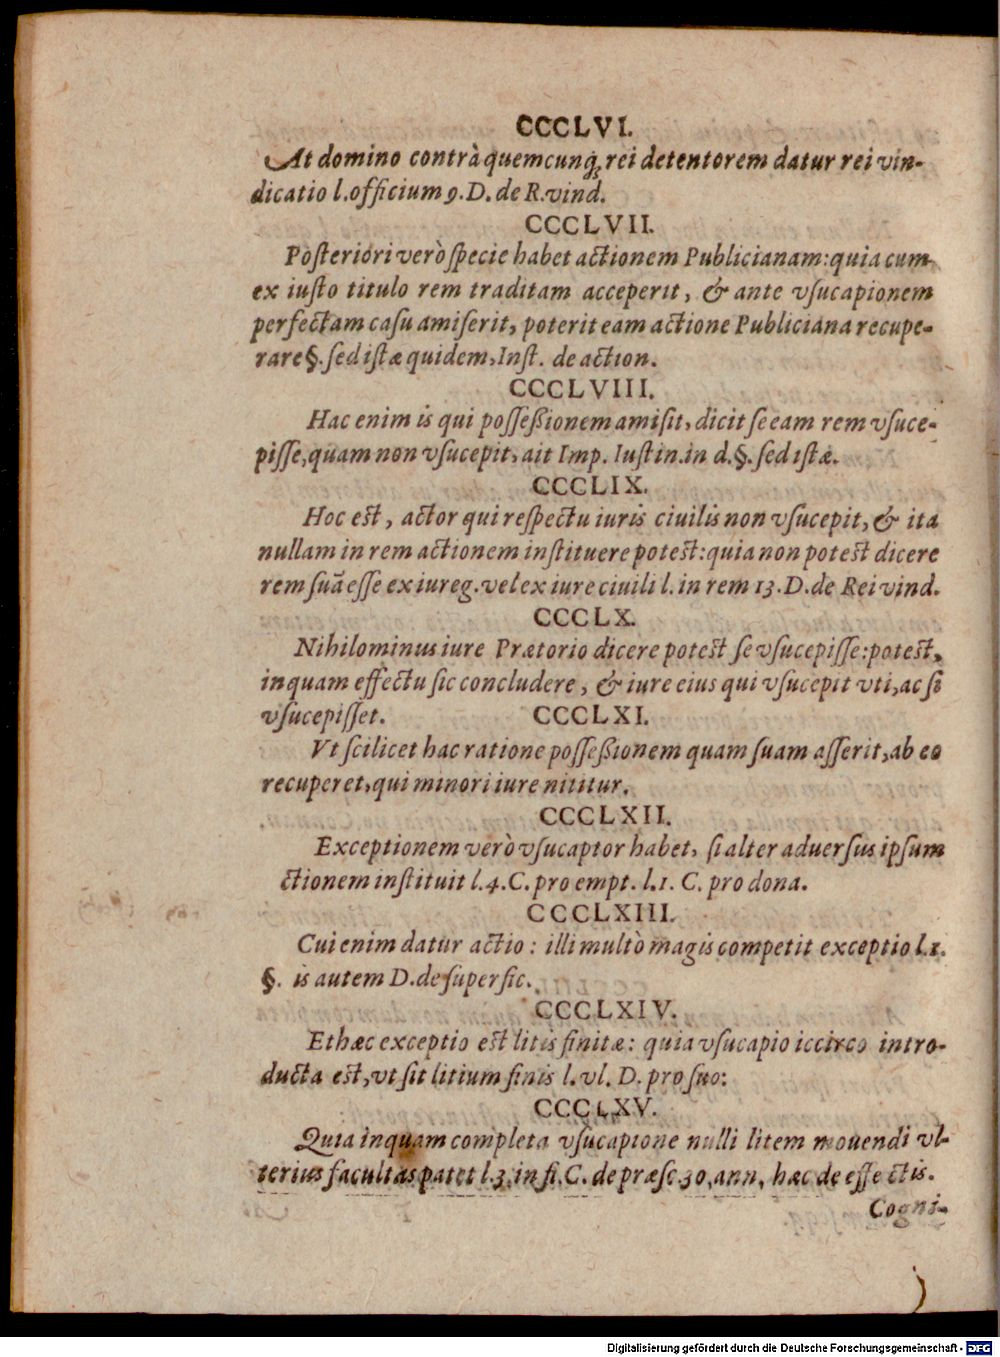 CCCLVI.
At domino contrà quemcunq; rei detentorem datur rei vin-
dicatio l. officium 9. D. de R. vind.
CCCLVII.
Posteriori verò specie habet actionem Publicianam: quia cum
ex iusto titulo rem traditam acceperit, & ante vsucapionem
perfectam casu amiserit, poterit eam actione Publiciana recupe-
rare §. sed istæ quidem, Inst. de action.
CCCLVIII.
Hac enim is qui posseßionem amisit, dicit se eam rem vsuce-
pisse, quam non vsucepit, ait Imp. Iustin. in d. §. sed istæ.
CCCLIX.
Hoc est, actor qui respectu iuris ciuilis non vsucepit, & ita
nullam in rem actionem instituere potest: quia non potest dicere
rem suā esse ex iure g. vel ex iure ciuili l. in rem 13. D. de Rei vind.
CCCLX.
Nihilominus iure Prætorio dicere potest se vsucepisse: potest,
inquam effectu sic concludere, & iure eius qui vsucepit vti, ac si
vsucepisset. CCCLXI.
Vt scilicet hac ratione possessionem quam suam asserit, ab eo
recuperet, qui minori iure nititur.
CCCLXII.
Exceptionem verò vsucaptor habet, si alter aduersus ipsum
ctionem instituit l. 4. C. pro empt. l. 1. C. pro dona.
CCCLXIII.
Cui enim datur actio: illi multò magis competit exceptio l. 1.
§. is autem D. de superfic.
CCCLXIV.
Et hæc exceptio est litis finitæ: quia vsucapio iccirco intro-
ducta est, vt sit litium finis l. vl. D. pro suo:
CCCLXV.
Quia inquam completa vsucapione nulli litem mouendi vl-
terius facultas patet l. 3. in fi. C. de præsc. 30. ann, hæc de effectis.
Cogni-
Digitalisierung gefördert durch die Deutsche Forschungsgemeinschaft - DFG